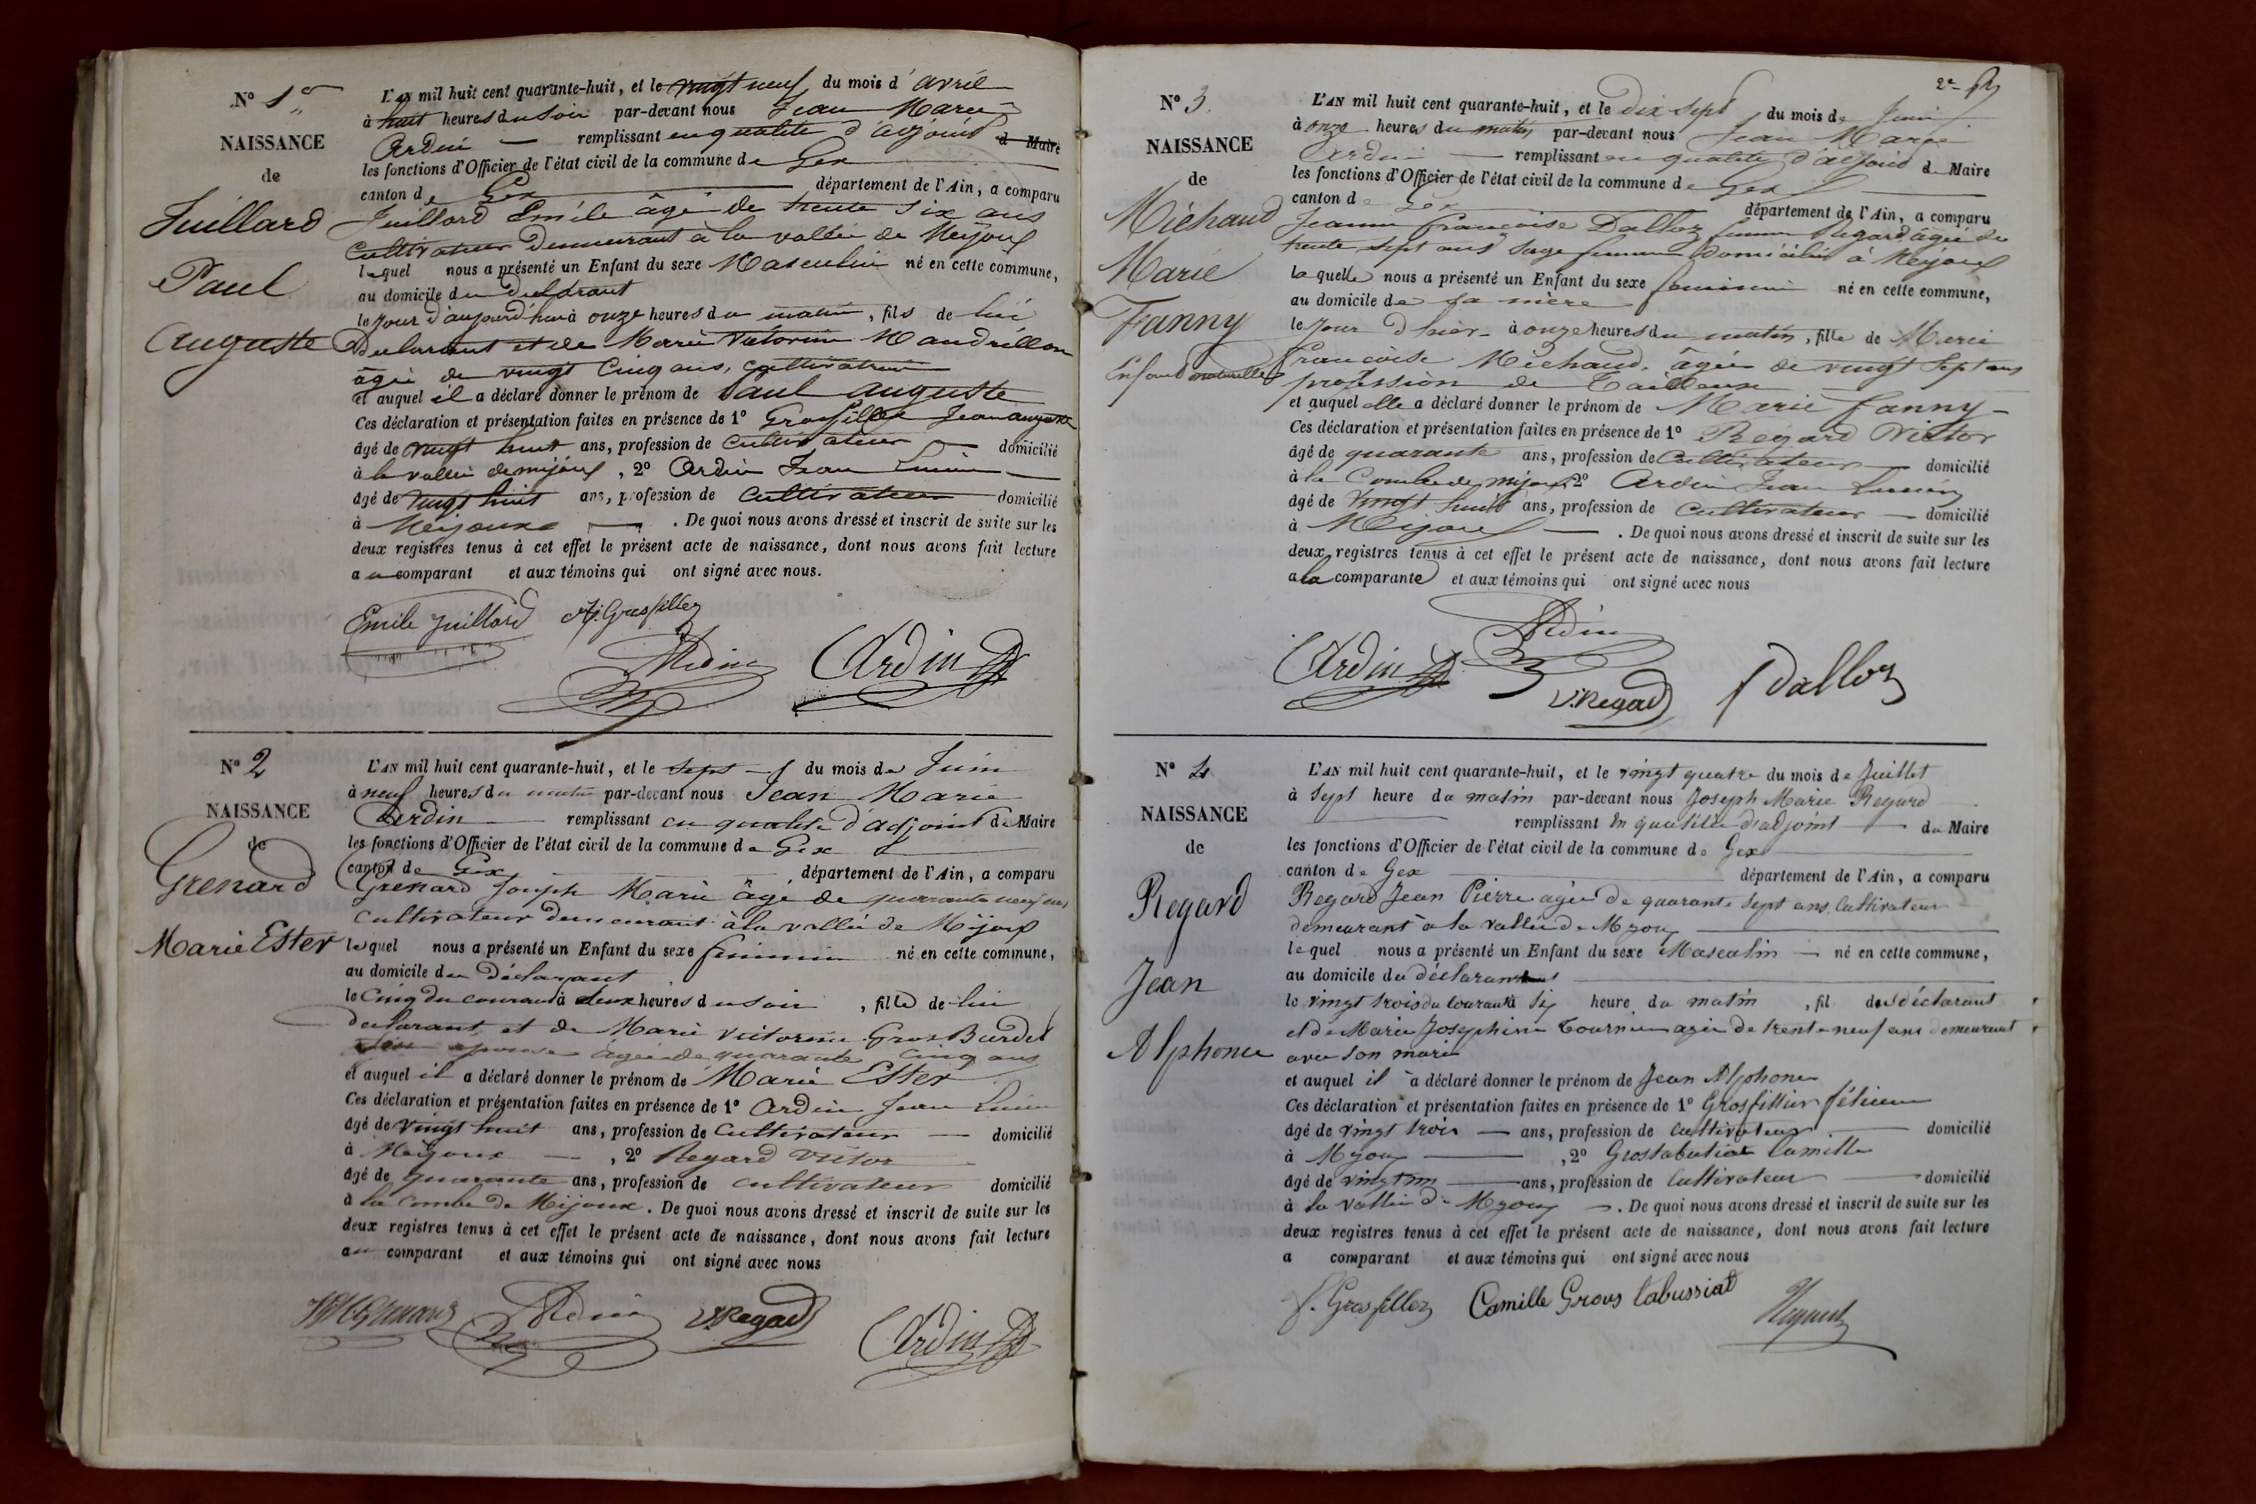 N° 1er
NAISSANCE
de
Juillard
Paul
Auguste
L'AN mil huit cent quarante-huit, et le vingt neuf du mois d'avril
à huit heures du soir par-devant nous Jean Marie
Ardin remplissant en qualité d'adjoint d Maire
les fonctions d'Officier de l'état civil de la commune de Gex
canton de Gex département de l'Ain, a comparu
Juillard Emile âgé de trente six ans
cultivateur demeurant à la vallée de Mijoux
lequel nous a présenté un Enfant du sexe Masculin né en cette commune,
au domicile du déclarant
le jour d'aujourd'hui à onze heures du matin, fils de lui
déclarant et de Marie Victorine Mandrillon
âgée de vingt cinq ans, cultivatrice
et auquel il a déclaré donner le prénom de Paul Auguste
Ces déclaration et présentation faites en présence de 1° Grosfillex Jean Auguste
âgé de vingt huit ans, profession de cultivateur domicilié
à la vallée de mijoux, 2° Ardin Jean Lucien
âgé de vingt huit ans, profession de cultivateur domicilié
à Mijoux. De quoi nous avons dressé et inscrit de suite sur les
deux registres tenus à cet effet le présent acte de naissance, dont nous avons fait lecture
au comparant et aux témoins qui ont signé avec nous.
Emile Juillard Grosfillex
Ardin Ardin
N° 2
NAISSANCE
de
Grenard
Marie Ester
L'AN mil huit cent quarante-huit, et le sept du mois de Juin
à neuf heures du matin par-devant nous Jean Marie
Ardin remplissant en qualité d'adjoint de Maire
les fonctions d'Officier de l'état civil de la commune de Gex
canton de Gex département de l'Ain, a comparu
Grenard Joseph Marie âgé de quarante neuf ans
cultivateur demeurant à la vallée de Mijoux
lequel nous a présenté un Enfant du sexe féminin né en cette commune,
au domicile du déclarant
le cinq du courant à deux heures du soir, fille de lui
déclarant et de Marie Victorine Gros Burdet
son épouse âgée de quarante cinq ans
et auquel il a déclaré donner le prénom de Marie Ester
Ces déclaration et présentation faites en présence de 1° Ardin Jean Lucien
âgé de vingt huit ans, profession de cultivateur domicilié
à Mijoux, 2° Regard Victor
âgé de quarante ans, profession de cultivateur domicilié
à la Combe de Mijoux. De quoi nous avons dressé et inscrit de suite sur les
deux registres tenus à cet effet le présent acte de naissance, dont nous avons fait lecture
au comparant et aux témoins qui ont signé avec nous
Grenard Ardin V. Regard Ardin
2e
N° 3
NAISSANCE
de
Michaud
Marie
Fanny
Enfant naturelle
L'AN mil huit cent quarante-huit, et le dix sept du mois de Juin
à onze heures du matin par-devant nous Jean Marie
Ardin remplissant en qualité d'adjoint de Maire
les fonctions d'Officier de l'état civil de la commune de Gex
canton de Gex département de l'Ain, a comparu
Jeanne françoise Dalloz femme Regard âgée de
trente sept ans Sage femme domiciliée à Mijoux
laquelle nous a présenté un Enfant du sexe féminin né en cette commune,
au domicile de sa mère
le jour d'hier à onze heures du matin, fille de Marie
françoise Michaud, âgée de vingt sept ans
profession de Tailleuse
et auquel elle a déclaré donner le prénom de Marie fanny
Ces déclaration et présentation faites en présence de 1° Regard Victor
âgé de quarante ans, profession de Cultivateur domicilié
à la Combe de mijoux 2° Ardin Jean Lucien
âgé de vingt huit ans, profession de cultivateur domicilié
à Mijoux. De quoi nous avons dressé et inscrit de suite sur les
deux registres tenus à cet effet le présent acte de naissance, dont nous avons fait lecture
a la comparante et aux témoins qui ont signé avec nous
Ardin Ardin V. Regard f Dalloz
N° 4
NAISSANCE
de
Regard
Jean
Alphonse
L'AN mil huit cent quarante-huit, et le vingt quatre du mois de Juillet
à sept heure du matin par-devant nous Joseph Marie Regard
remplissant en qualité d'adjoint du Maire
les fonctions d'Officier de l'état civil de la commune de Gex
canton de Gex département de l'Ain, a comparu
Regard Jean Pierre agée de quarante sept ans, Cultivateur
demeurant à la vallée de Mijoux
lequel nous a présenté un Enfant du sexe Masculin né en cette commune,
au domicile du déclarant
le vingt trois du courant à six heure du matin, fil du déclarant
et de Marie Josephine Tournier agée de trente neuf ans demeurant
avec son mari
et auquel il a déclaré donner le prénom de Jean Alphonse
Ces déclaration et présentation faites en présence de 1° Grosfillex félicien
âgé de vingt trois ans, profession de cultivateur domicilié
à Mijoux, 2° Groslabussiat Camille
âgé de vingt un ans, profession de Cultivateur domicilié
à la vallée de Mijoux. De quoi nous avons dressé et inscrit de suite sur les
deux registres tenus à cet effet le présent acte de naissance, dont nous avons fait lecture
a comparant et aux témoins qui ont signé avec nous
f. Grosfillex Camille Grous labussiat Regard